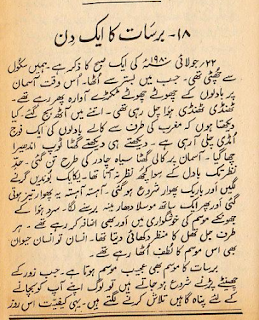 ۱۸۔ برسات کا ایک دن
۲۲ جولائی ۱۹۸۰ء کی ایک صبح کا ذکر ہے۔ ہمیں سکول
سے چھٹی تھی۔ جب میں بستر سے اُٹھا۔ اُس وقت آسمان
پر بادلوں کے چھوٹے چھوٹے ٹکڑے آوارہ پھر رہے تھے۔
ٹھنڈی ٹھنڈی ہوا چل رہی تھی۔ اتنے میں آٹھ بج گئے۔ کیا
دیکھتا ہوں کہ مغرب کی طرف سے کالے بادلوں کی ایک فوج
اُمڈی چلی آ رہی ہے۔ دیکھتے ہی دیکھتے گھٹا ٹوپ اندھیرا
چھا گیا۔ آسمان پر کالی گھٹا سیاہ چادر کی طرح تن گئی۔ حدِ
نظر تک بادل کے سوا کچھ نظر نہ آتا تھا۔ یکایک بوندیں گرنے
لگیں اور باریک پھوار شروع ہو گئی۔ آہستہ آہستہ یہ پھوار تیز ہوتی
گئی اور پھر ایک ساتھ موسلا دھار مینہ برسنے لگا۔ سرد ہوا کے
جھونکے موسم کی خوشگواری میں اور بھی اضافہ کر رہے تھے۔ ہر
طرف جل تھل کا منظر دکھائی دیتا تھا۔ انسان تو انسان حیوان
بھی اس موسم کا لطف اُٹھا رہے تھے۔
برسات کا موسم بھی عجیب موسم ہوتا ہے۔ جب زور کے
چھینٹے پڑنے شروع ہو جاتے ہیں۔ تو لوگ اپنے آپ کو بچانے
کے لئے پناہ گاہیں تلاش کرنے لگتے ہیں۔ یہی کیفیت اس روز